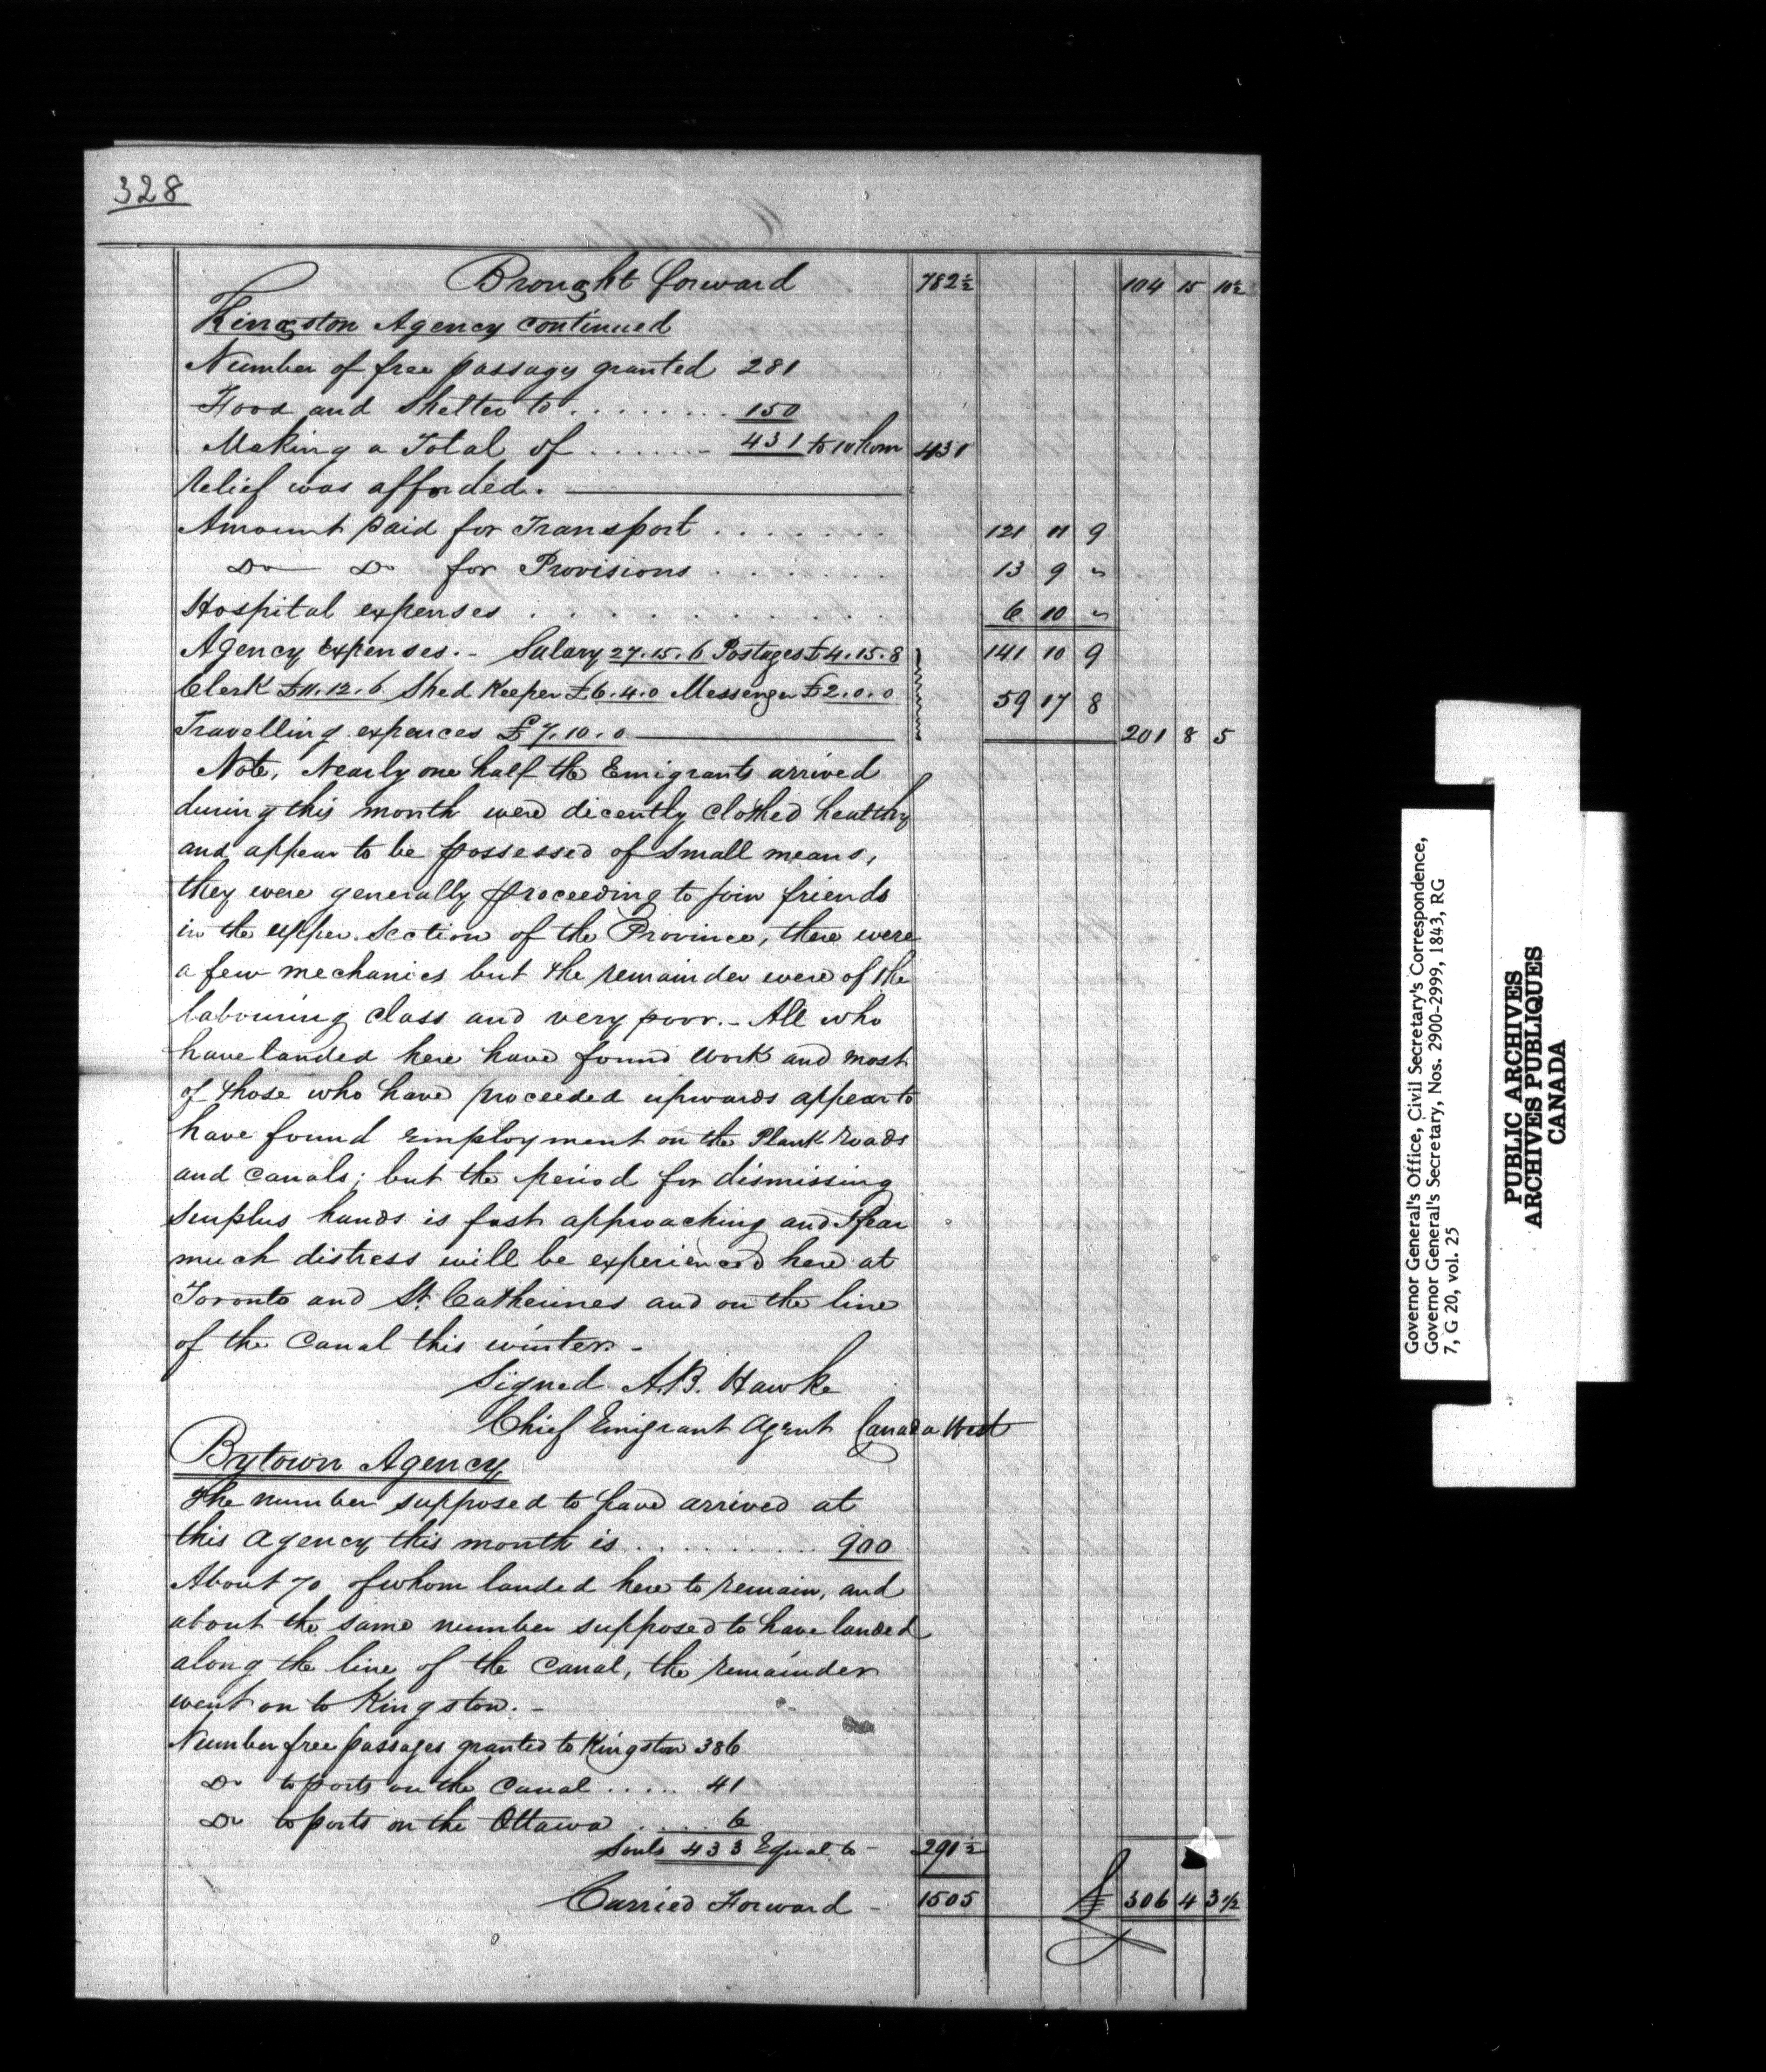 328
Brought forward 782½ 104 15 10½
Kingston Agency continued
Number of free passages granted 281
Food and Shelter to . . . . . . . 150
Making a Total of . . . . . . 431 to whom 431
relief was afforded.
Amount paid for Transport . . . . . . . 121 11 9
Do Do for Provisions . . . . . . . 13 9 "
Hospital expenses . . . . . . . . . . . 6 10 "
Agency Expenses. - Salary 27.15.6 Postages £4.15.8 141 10 9
Clerk £11.12.6 Shed Keeper £6.4.0 Messenger £2.0.0 59 17 8
Travelling expences £7.10.0 201 8 5
Note, Nearly one half the Emigrants arrived
during this month were dicently clothed healthy
and appear to be possessed of small means,
they were generally proceeding to join friends
in the upper Section of the Province, there were
a few mechanics but the remainder were of the
labouring class and very poor. - All who
have landed here have found work and most
of those who have proceeded upwards appear to
have found employment on the Plank roads
and canals; but the period for dismissing
surplus hands is fast approaching and I fear
much distress will be experienced here at
Toronto and St. Catherines and on the line
of the Canal this winter. -
Signed A.B. Hawke
Chief Emigrant Agent Canada West
Bytown Agency
The number supposed to have arrived at
this agency this month is . . . . . . . . . . 900
About 70 of whom landed here to remain, and
about the same number supposed to have landed
along the line of the Canal, the remainder
went on to Kingston. -
Number free passages granted to Kingston 386
Do to ports on the Canal . . . . . 41
Do to ports on the Ottawa . . . . . 6
Souls 433 Equal to - 291½
Carried Forward - 1505 £ 306 4 3 1/2
Governor General's Office, Civil Secretary's Correspondence,
Governor General's Secretary, Nos. 2900-2999, 1843, RG
7, G 20, vol. 25
PUBLIC ARCHIVES
ARCHIVES PUBLIQUES
CANADA